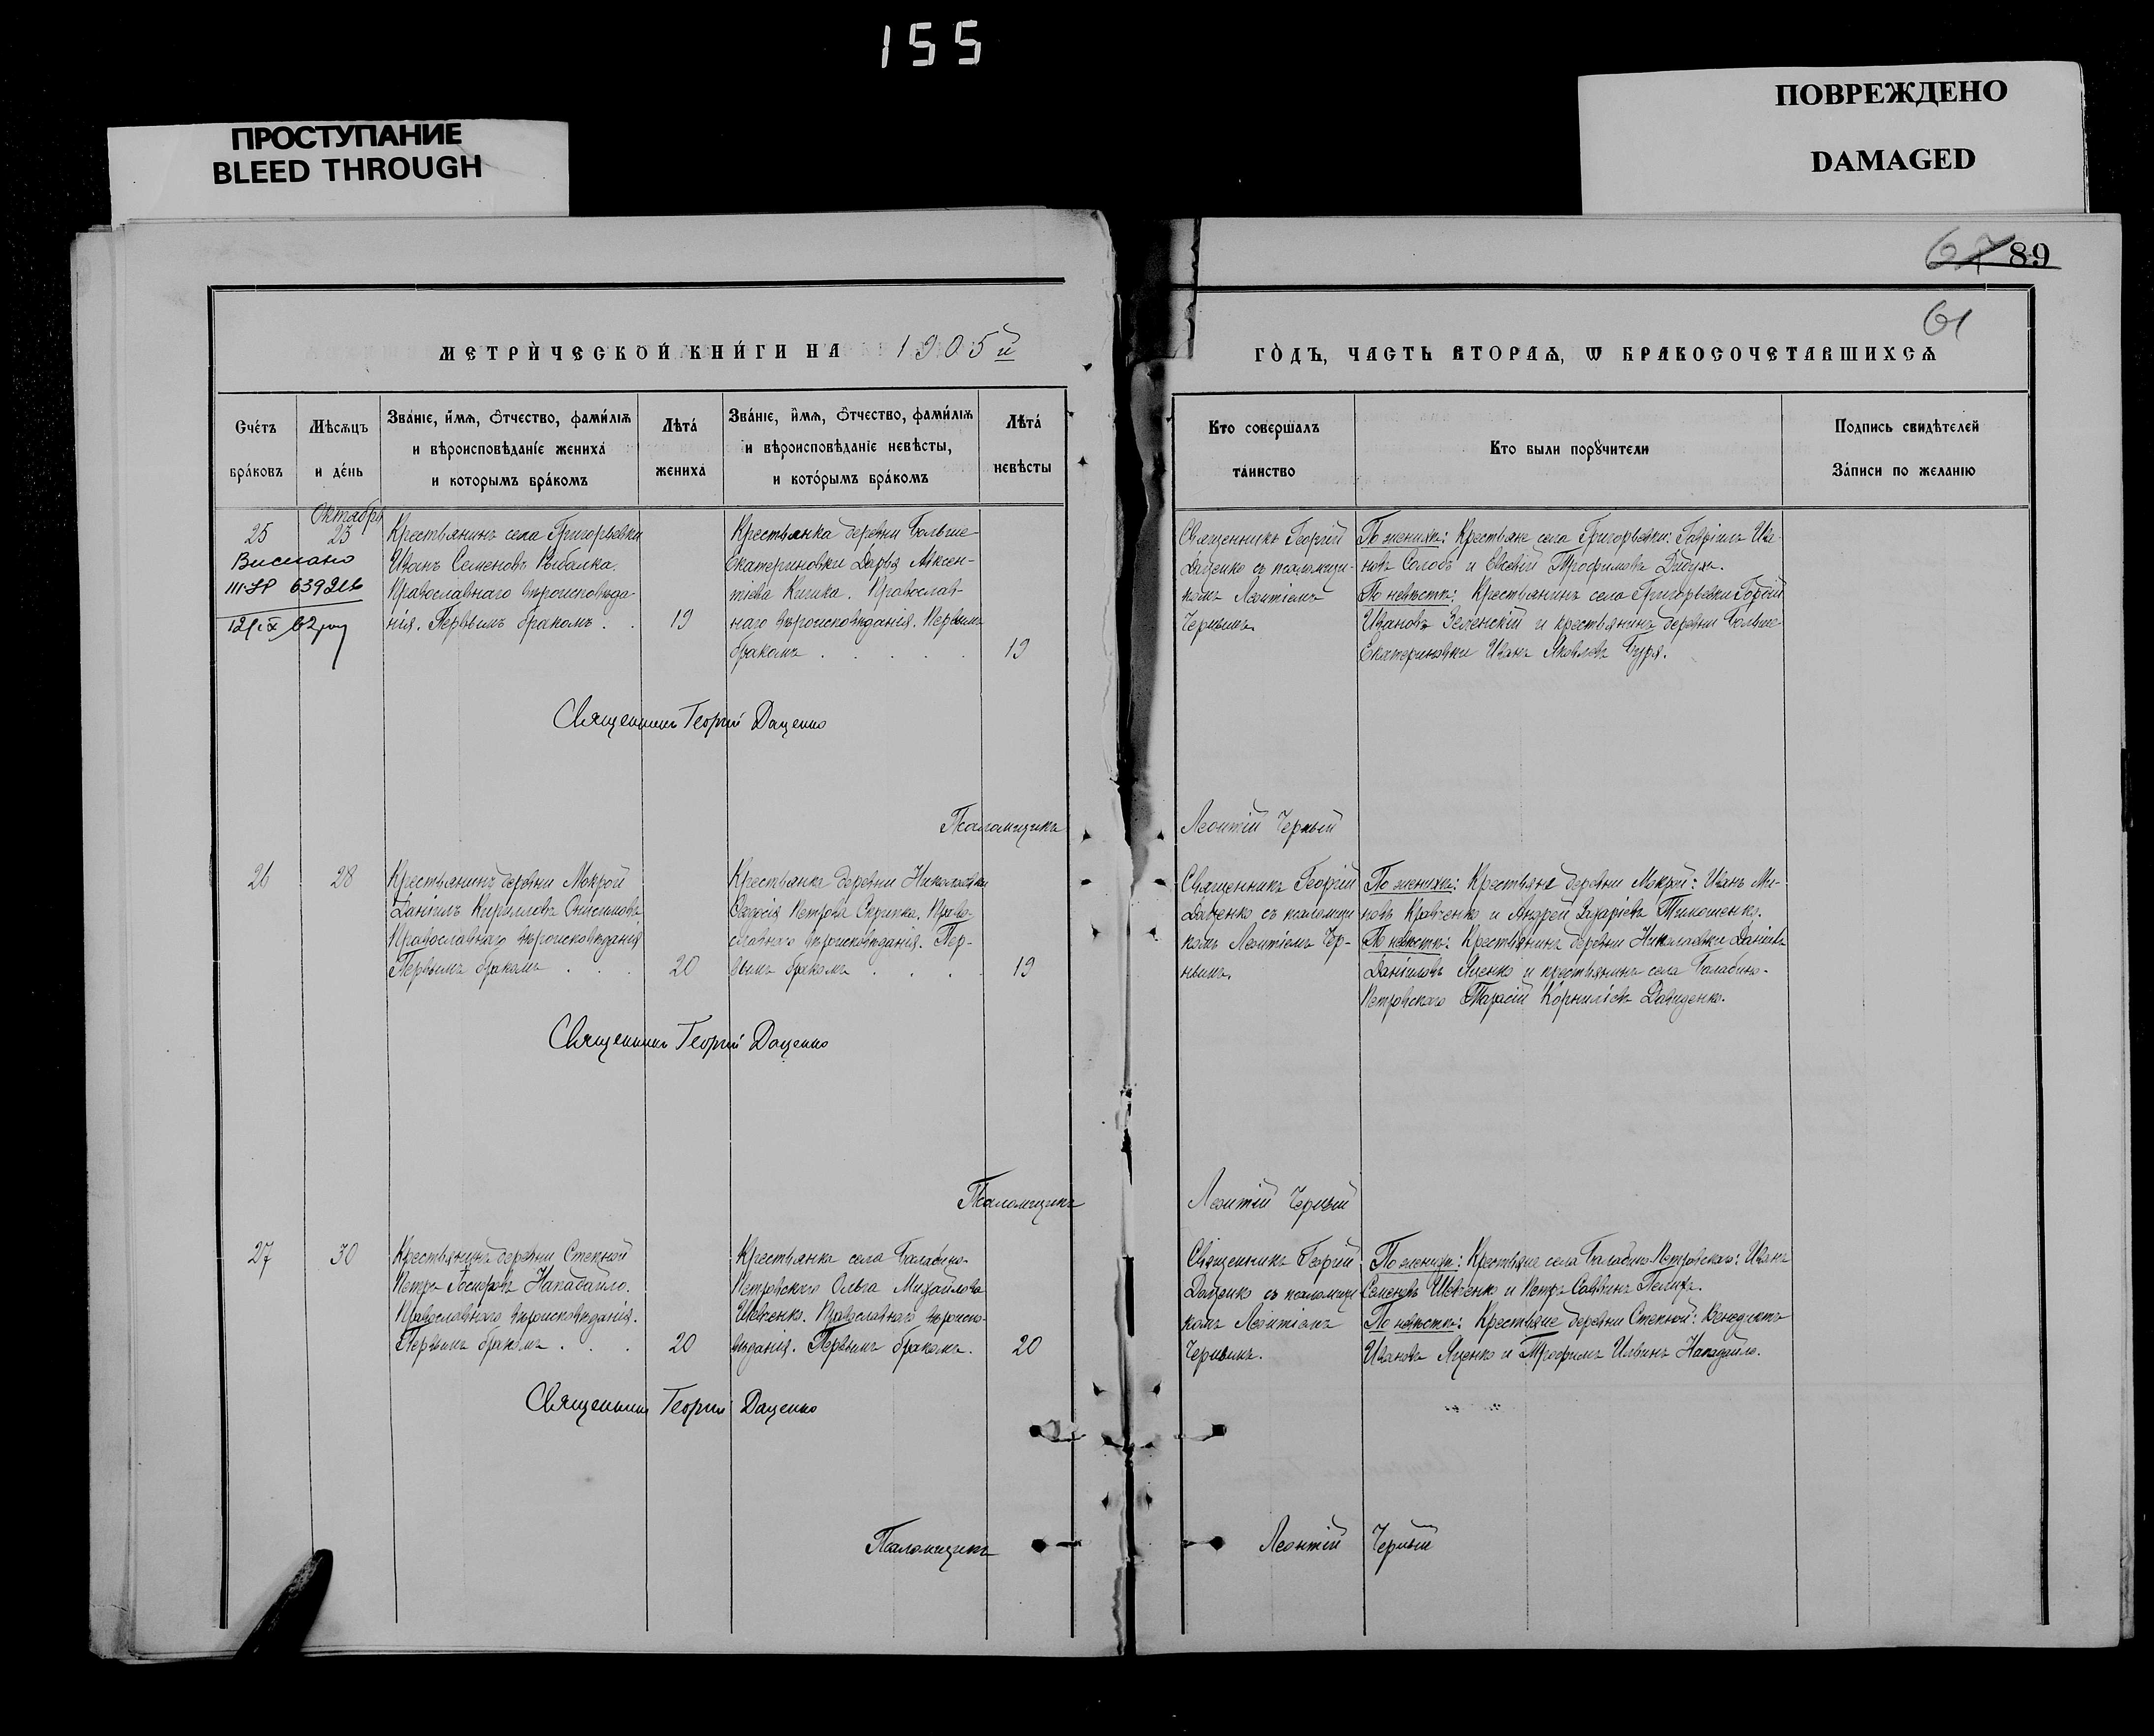 155
ПРОСТУПАНИЕ
BLEED THROUGH
ПОВРЕЖДЕНО
DAMAGED
67 89
61
МЕТРИ́ЧЕСКОЙ КНИ́ГИ НА 1905й
ГО́ДЪ, ЧАСТЬ ВТОРАѦ, Ѡ БРАКОСОЧЕТАВШИХСѦ
Сче́тъ бра́ковъ
Мѣсѧцъ и де́нь
Зва́нїе, и́мѧ, ѻ҆́тчество, фами́лїѧ
и вѣроисповѣда́нїе жениха̀
и которымъ бра́комъ
Лѣта́ жениха̀
Зва́нїе, и́мѧ, ѻ҆́тчество, фами́лїѧ
и вѣроисповѣданїе невѣсты,
и кото́рымъ бра́комъ
Лѣта́ невѣсты
Кто совершалъ та́инство
Кто были порꙋчители
Подпись свидѣтелей
За́писи по желанїю
Октябрь
25
23
Крестьянинъ села Григорьевки
Иванъ Семеновъ Рыбалка.
Православнаго вѣроисповѣда-
нія. Первымъ бракомъ . .
19
Крестьянка деревни Больше-
Екатериновки Дарья Аѵксен-
тіева Кигика. Православ-
наго вѣроисповѣданія. Первымъ
бракомъ . . . . .
19
Священникъ Георгій
Даценко съ псаломщи-
комъ Леонтіемъ
Чернымъ.
По женихѣ: Крестьяне села Григорьевки: Гавріилъ Ива-
новъ Солодъ и Евгеній Трофимовъ Дидухъ.
По невѣстѣ: Крестьянинъ села Григорьевки
Ивановъ Зеленскій и крестьянинъ деревни Больше-
Екатериновки Иванъ Яковлевъ Буря.
Висилано
12/IX 62
Священникъ Георгій Даценко
Псаломщикъ Леонтій Черный
26
28
Крестьянинъ деревни Мокрой
Даніилъ Кирилловъ Онисимовъ
Православнаго вѣроисповѣданія
Первымъ бракомъ . . .
20
Крестьянка деревни Николаевки
Ѳеодосія Петрова Скрипка. Право-
славнаго вѣроисповѣданія. Пер-
вымъ бракомъ . . . .
19
Священникъ Георгій
Даценко съ псаломщи-
комъ Леонтіемъ Чер-
нымъ.
По женихѣ: Крестьяне деревни Мокрой: Иванъ Ми-
новъ Кравченко и Андрей Захаріевъ Тимошенко.
По невѣстѣ: Крестьянинъ деревни Николаевки Даніилъ
Даніиловъ Яценко и крестьянинъ села Балабино-
Петровскаго Тарасій Корниліевъ Давиденко.
Священникъ Георгій Даценко
Псаломщикъ Леонтій Черный
27
30
Крестьянинъ деревни Степной
Петръ Іосифовъ Нападайло.
Православнаго вѣроисповѣданія.
Первымъ бракомъ . . .
20
Крестьянка села Балабино-
Петровскаго Ольга Михайлова
Шевченко. Православнаго вѣроиспо-
вѣданія. Первымъ бракомъ.
20
Священникъ Георгій
Даценко съ псаломщи-
комъ Леонтіемъ
Чернымъ.
По женихѣ: Крестьяне села Балабино-Петровскаго: Иванъ
Семеновъ Шевченко и Петръ Саввинъ Пелихъ.
По невѣстѣ: Крестьяне деревни Степной: Венедиктъ
Ивановъ Яценко и Трофимъ Ильинъ Нападайло.
Священникъ Георгій Даценко
Псаломщикъ Леонтій Черный